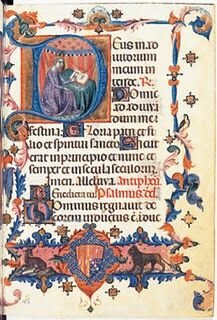 Deus in ad
iutorium
meum in
tende. R.
Domine
ad adiuva
dum me
festina. Gloria patri et fi
lio et spiritui sancto Sicut
erat in principio et nunc et
semper et in secula seculorum.
Amen. Alleluya
tu. Psalmus
Dominus regnavit de
corem indutus